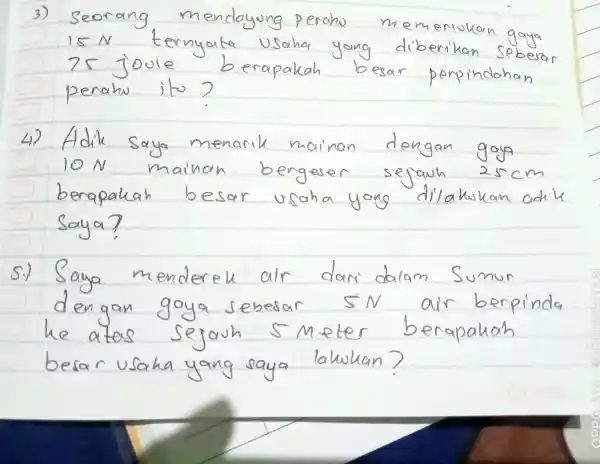 3) Seorang mendayung perahu memerlukan gaya
15 N ternyata usaha yang diberikan sebesar
75 joule berapakah besar perpindahan
perahu itu?
4) Adik saya menarik mainan dengan gaya
10 N mainan bergeser sejauh 25 cm
berapakah besar usaha yang dilakukan adik
saya?
5.) Saya menderek air dari dalam Sumur
dengan gaya sebesar 5 N air berpinda
ke atas sejauh 5 Meter berapakah
besar usaha yang saya lakukan?
OPPO